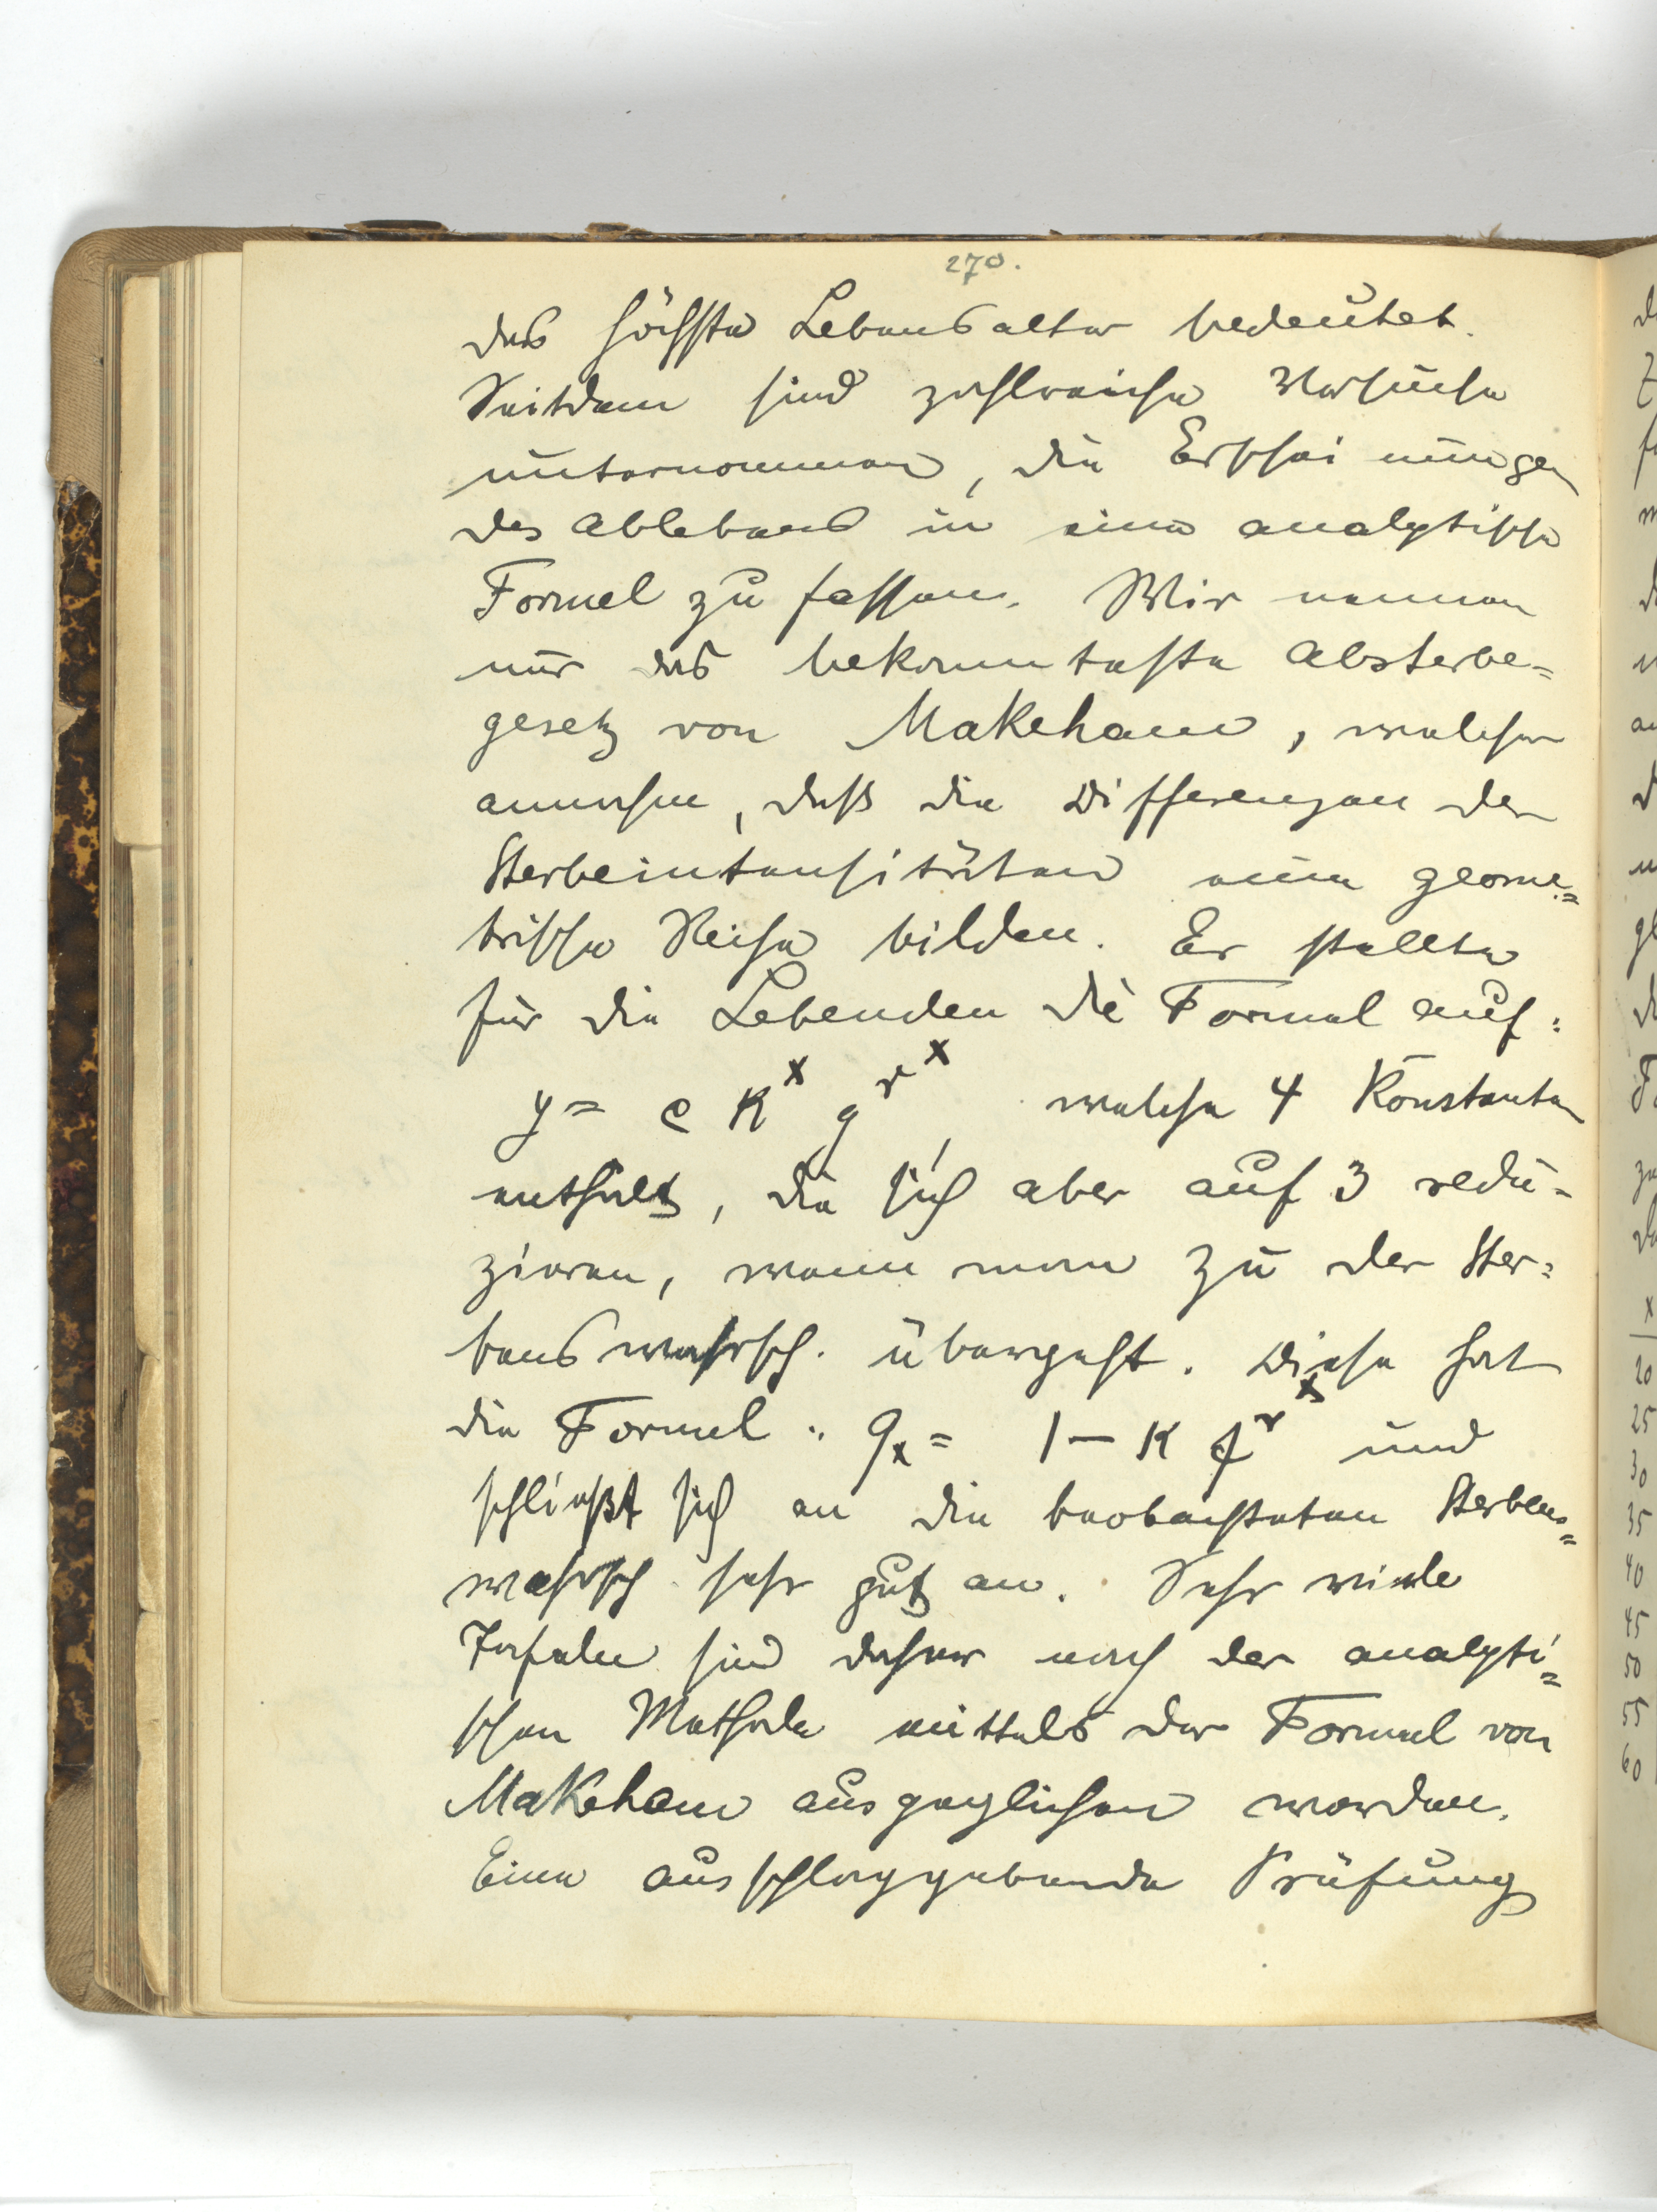 270.
das höchste Lebensalter bedeutet.
Seitdem sind zahlreiche Versuche
unternommen, die Erscheinungen
des Ablebens in eine analytische
Formel zu fassen. Wir nennen
nur das bekannteste Absterbe=
gesetz von Makeham, welcher
annahm, daß die Differenzen der
Sterbeintensitäten eine geome=
trische Reihe bilden. Er stellte
für die Lebenden die Formel auf:
y = c k^x g^r^x, welche 4 Konstanten
enthält, die sich aber auf 3 redu=
zieren, wenn man zu der Ster=
benswahrsch. übergeht. Diese hat
die Formel: q_x = 1 – k f^r^x und
schließt sich an die beobachteten Sterbens=
wahrsch. sehr gut an. Sehr viele
Tafeln sind daher nach der analyti=
schen Methode mittels der Formel von
Makeham ausgeglichen worden.
Eine ausschlaggebende Prüfung
x
20
25
30
35
40
45
50
55
60